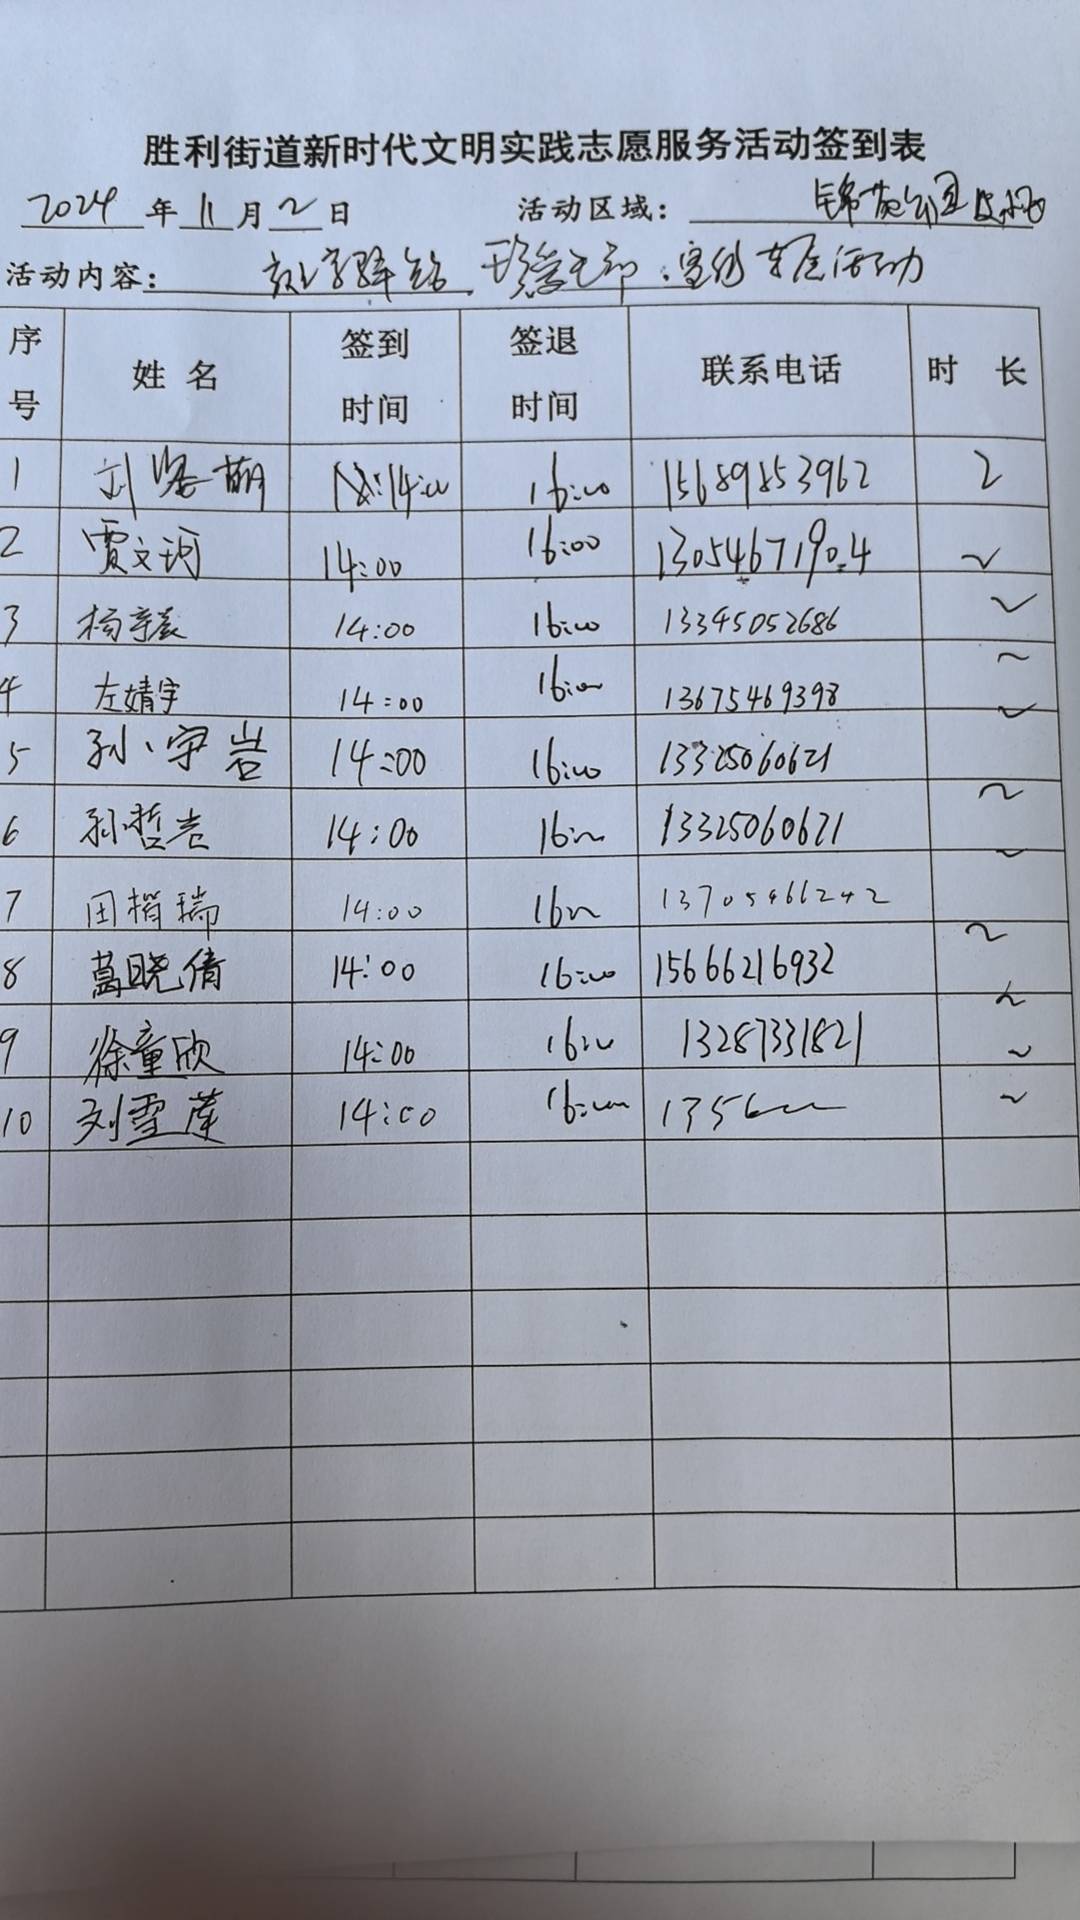 胜利街道新时代文明实践志愿服务活动签到表
2024 年 11 月 2 日 活动区域：
活动内容： 活动
序号 姓名 签到时间 签退时间 联系电话 时长
1 刘 萌 14:00 16:00 15689853962 2
2 贾文珂 14:00 16:00 13054671904 2
3 杨 14:00 16:00 13345052686 2
4 左婧宇 14:00 16:00 13675469398 2
5 孙宇岩 14:00 16:00 13325060621 2
6 孙哲 14:00 16:00 13325060621 2
7 田 瑞 14:00 16:00 13705466242 2
8 葛晓倩 14:00 16:00 15666216932 2
9 徐童欣 14:00 16:00 13287331821 2
10 刘雪莲 14:00 16:00 135